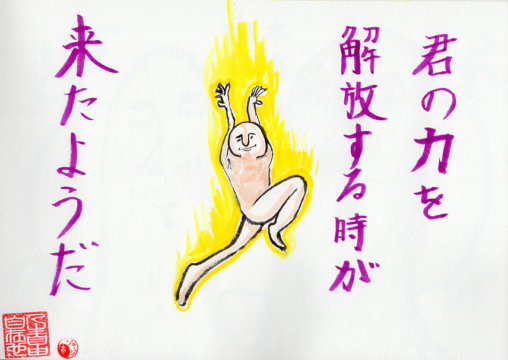 君の力を
解放する時が
来たようだ